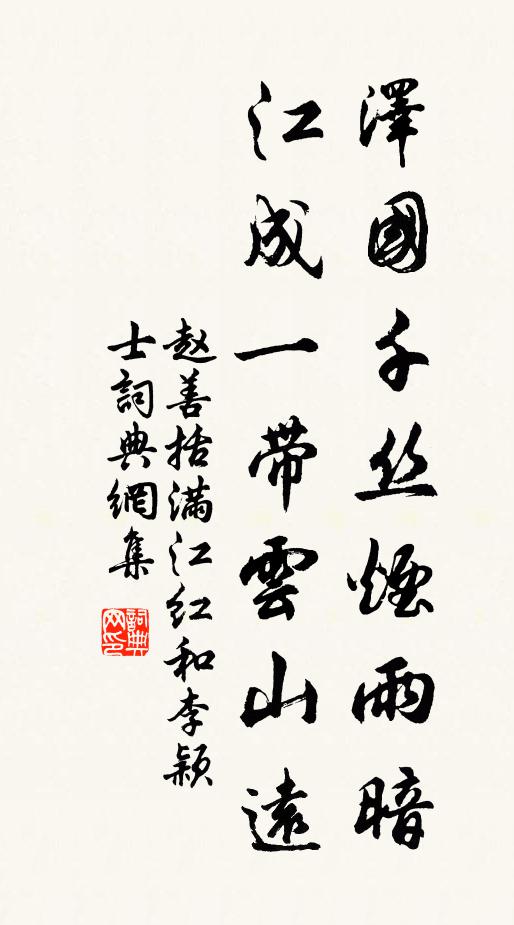 澤國千丝煙雨暗
江成一带雲山遠
赵善括满江红和李颖
士詞典網集
詞典网印